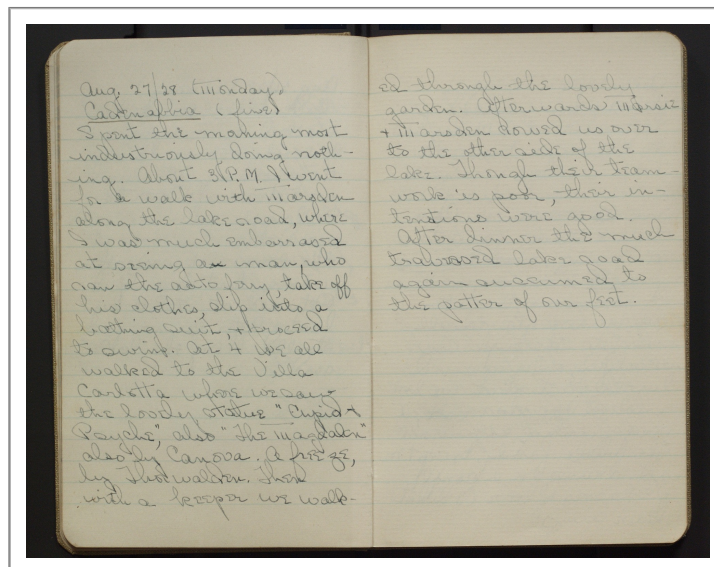 Aug. 27/28 (Monday)
Cadenabbia (fine)
Spent the morning most
industriously doing noth-
ing. About 3 P.M. I went
for a walk with Marsden
along the lake road, where
I was much embarrassed
at seeing a man, who
ran the auto ferry, take off
his clothes, slip into a
bathing suit, + proceed
to swim. At 4 we all
walked to the Villa
Carlotta where we saw
the lovely statue "Cupid +
Psyche", also "The Magdalen"
also by Canova. A freeze,
by Thorwalden. Then
with a keeper we walk-
ed through the lovely
garden. Afterwards Marsie
+ Marsden rowed us over
to the other side of the
lake. Though their team-
work is poor, their in-
tentions were good.
After dinner the much
traversed lake road
again succumed to
the patter of our feet.